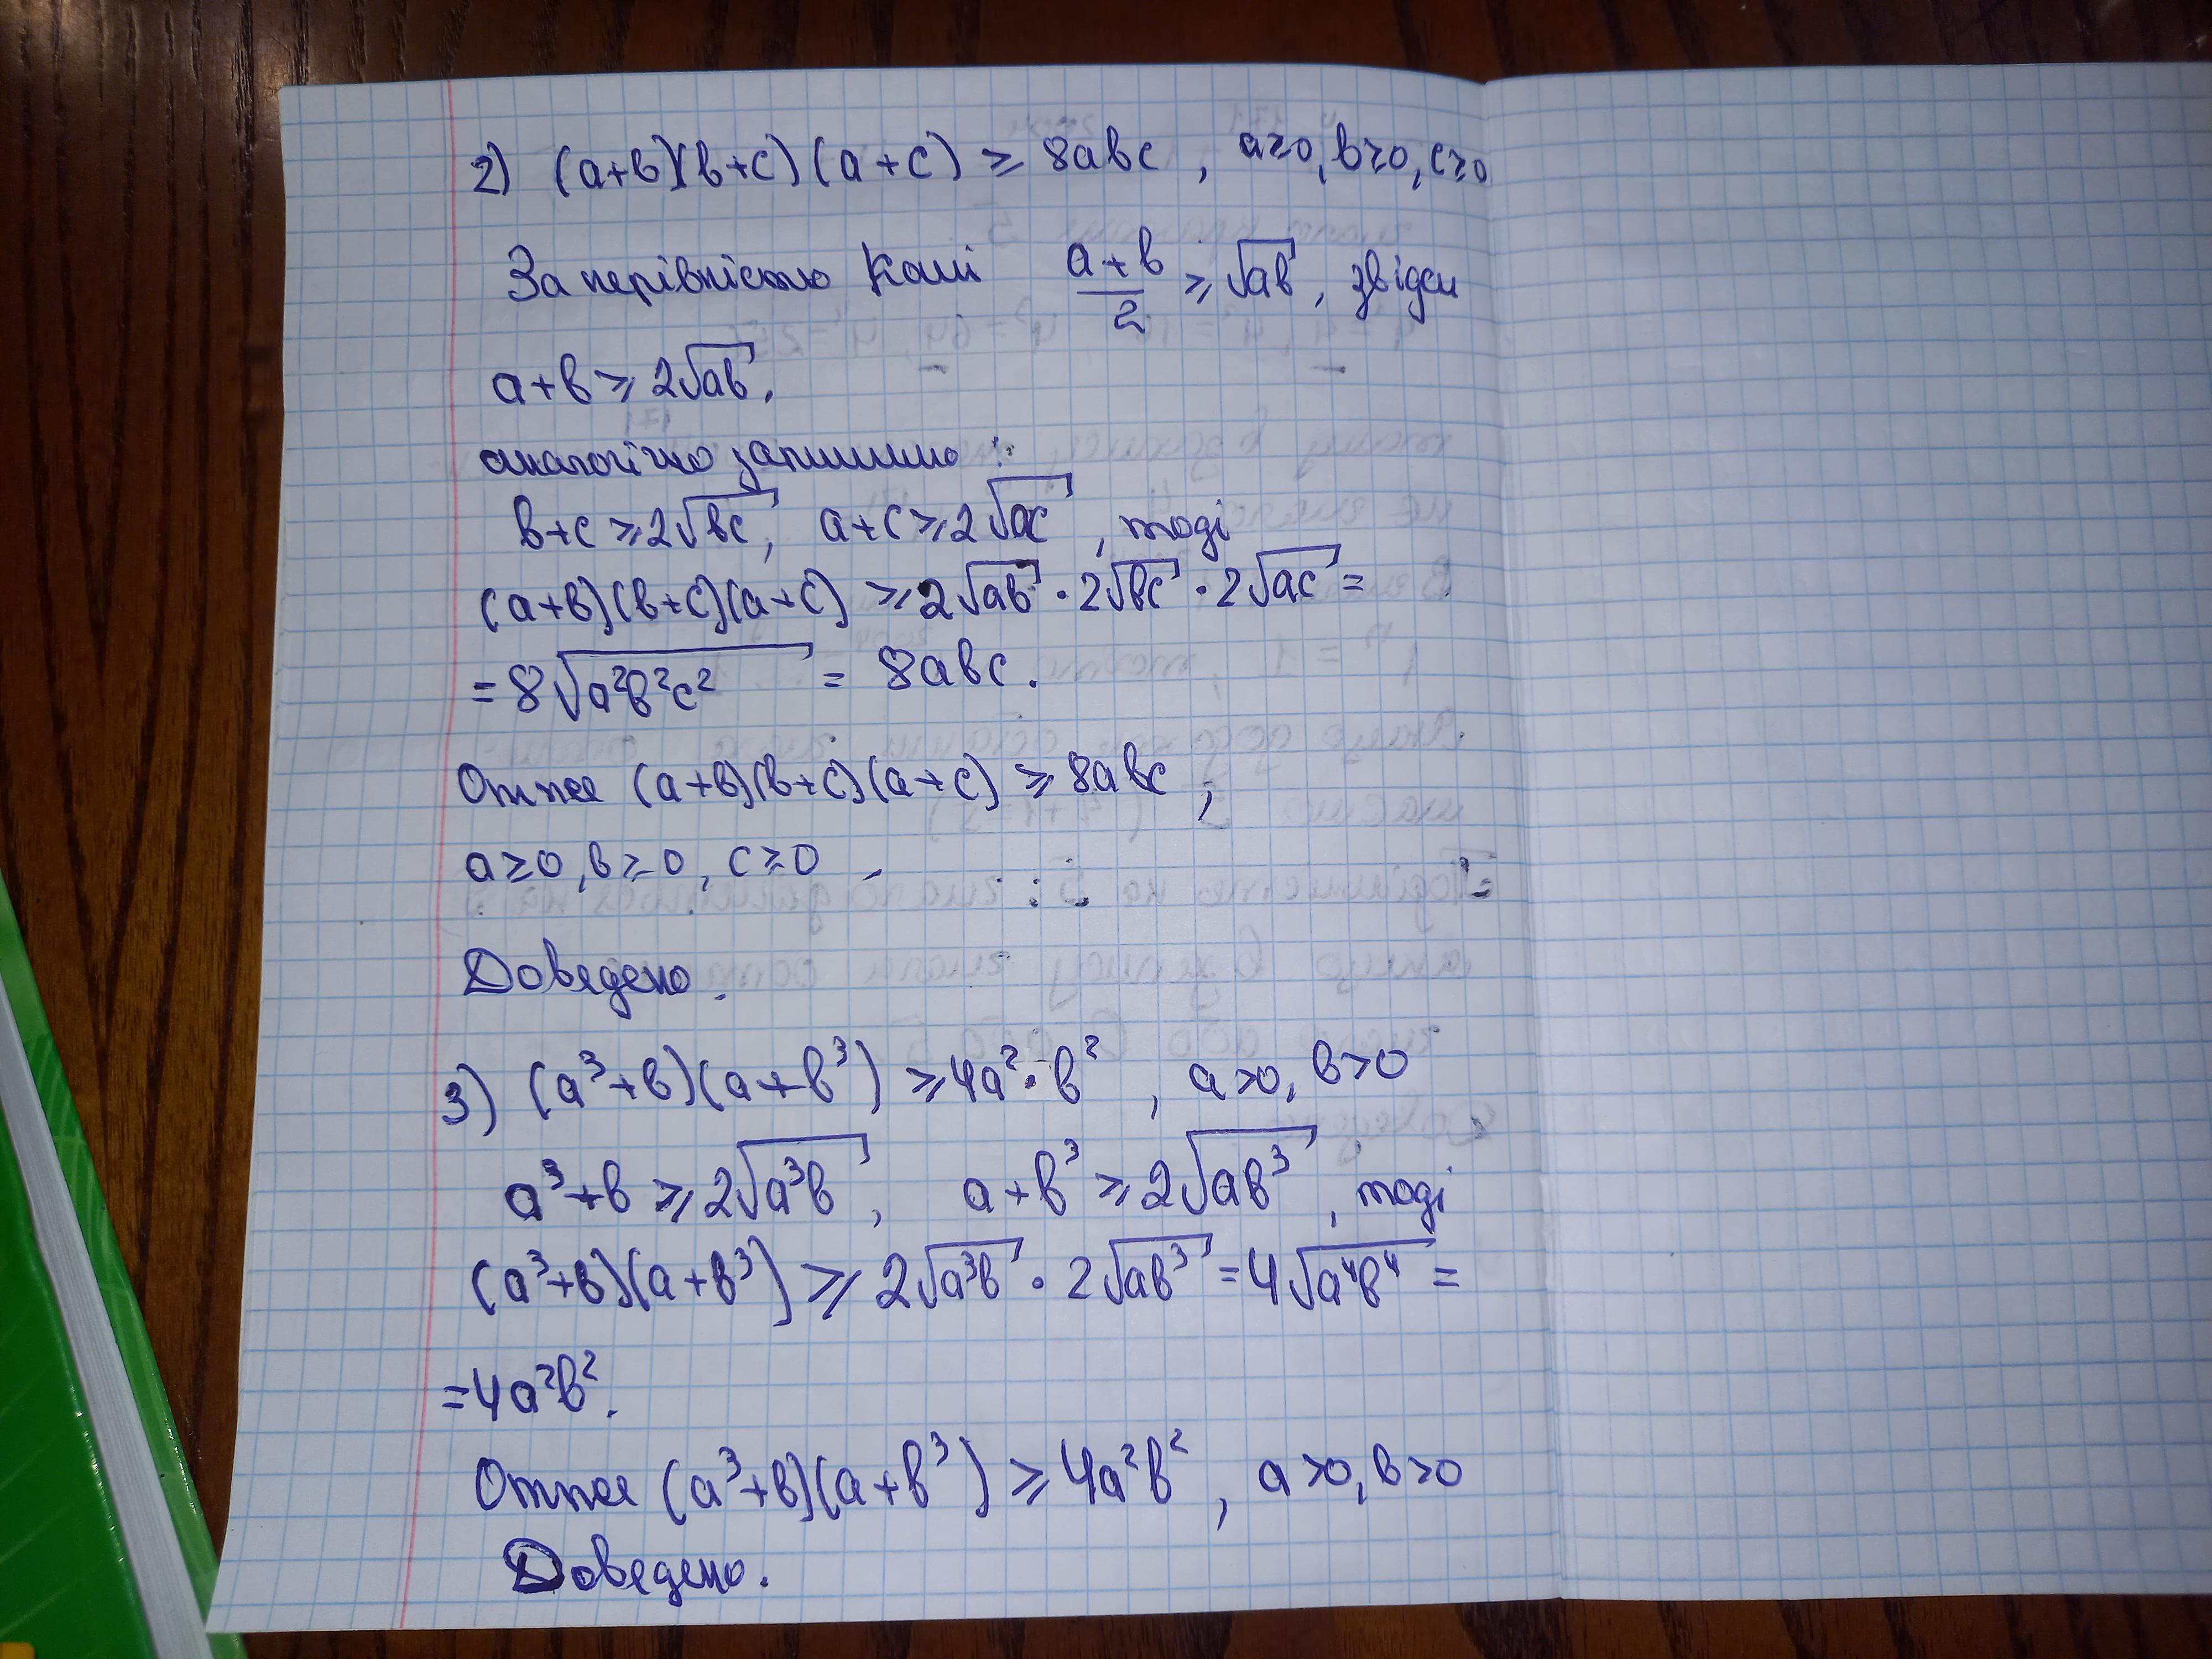 2) (a+b)(b+c)(a+c) ≥ 8abc, a≥0, b≥0, c≥0
За нерівністю Коші (a+b)/2 ≥ √ab, звідси
a+b ≥ 2√ab.
аналогічно запишимо:
b+c ≥ 2√bc, a+c ≥ 2√ac, тоді
(a+b)(b+c)(a+c) ≥ 2√ab · 2√bc · 2√ac =
= 8√a²b²c² = 8abc.
Отже (a+b)(b+c)(a+c) ≥ 8abc,
a≥0, b≥0, c≥0.
Доведено.
3) (a³+b)(a+b³) ≥ 4a²·b², a>0, b>0
a³+b ≥ 2√a³b, a+b³ ≥ 2√ab³, тоді
(a³+b)(a+b³) ≥ 2√a³b · 2√ab³ = 4√a⁴b⁴ =
= 4a²b².
Отже (a³+b)(a+b³) ≥ 4a²b², a>0, b>0
Доведено.